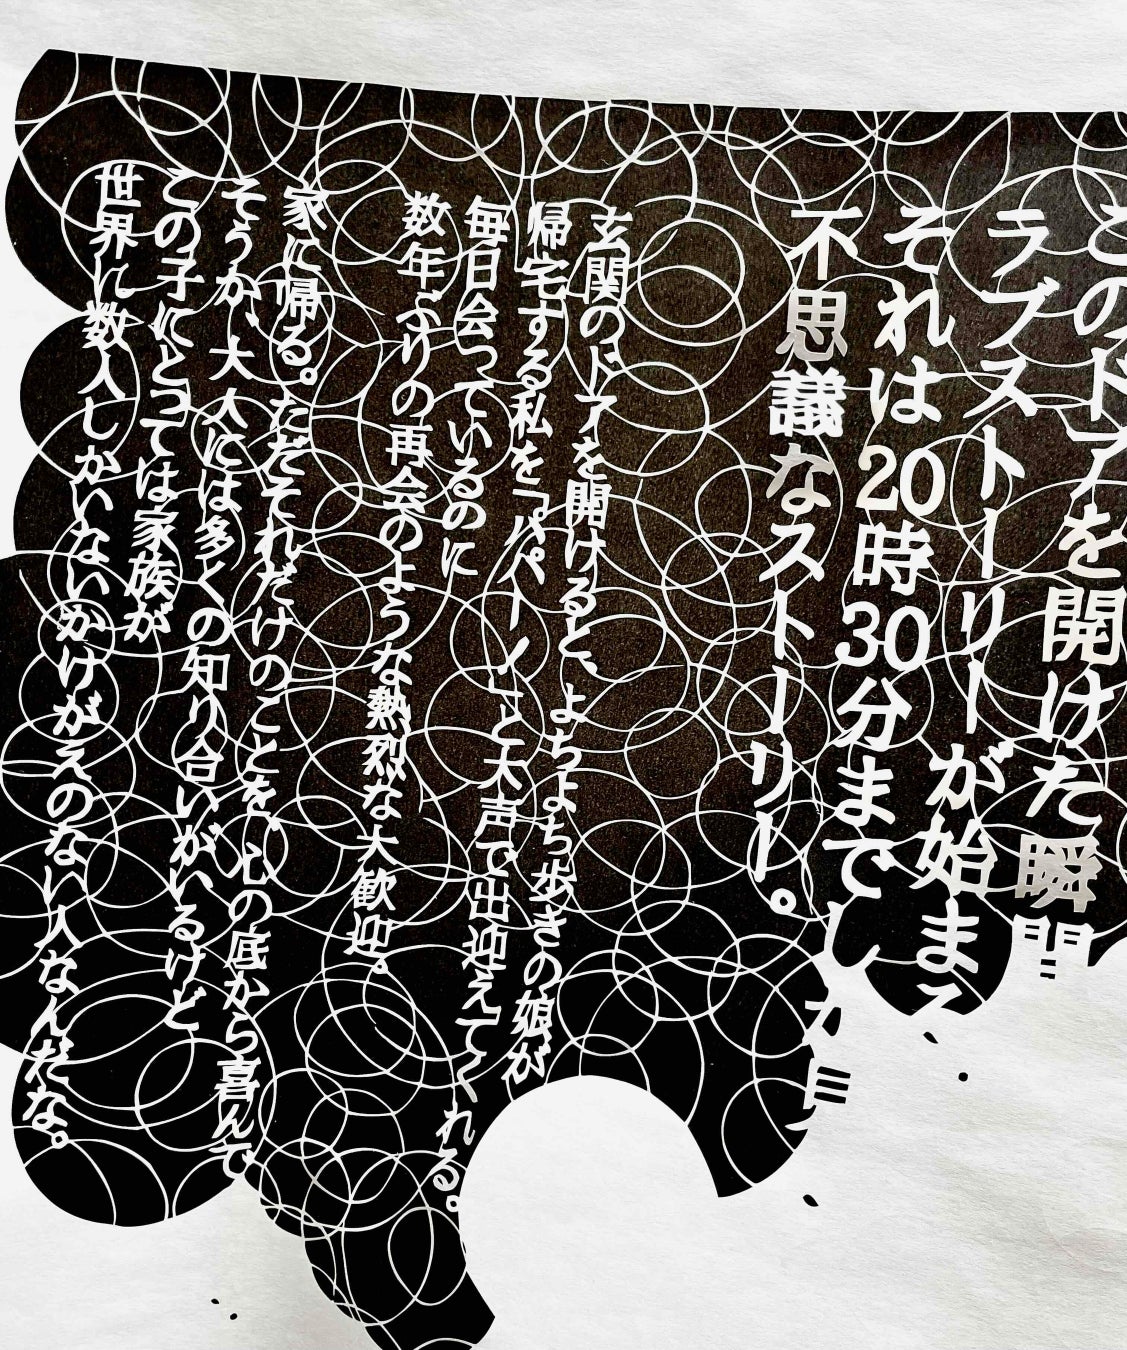 このドアを開けた瞬間
ラブストーリーが始まる
それは20時30分までし
不思議なストーリー。
玄関のドアを開けると、よちよち歩きの娘が
帰宅する私を「パパーッ」と大声で出迎えてくれる。
毎日会っているのに
数年ぶりの再会のような熱烈な大歓迎。
家に帰る。ただそれだけのことを、心の底から喜んで
そうか、大人には多くの知り合いがいるけど
この子にとっては家族が
世界に数人しかいないかけがえのない人なんだな。